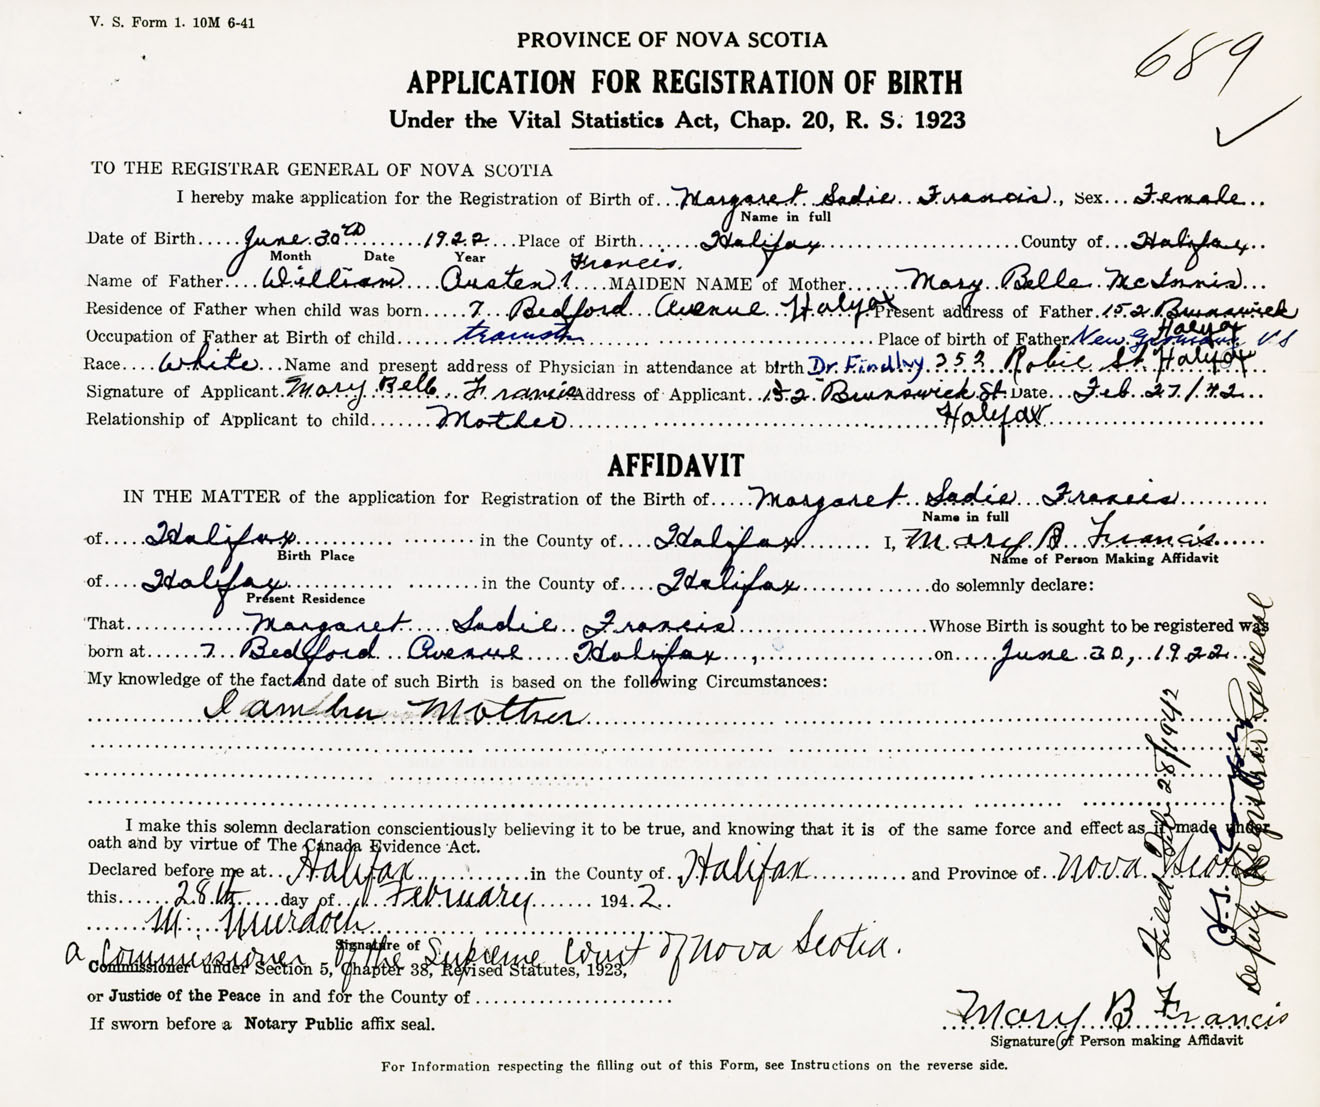 V. S. Form 1. 10M 6-41
689
PROVINCE OF NOVA SCOTIA
APPLICATION FOR REGISTRATION OF BIRTH
Under the Vital Statistics Act, Chap. 20, R. S. 1923
TO THE REGISTRAR GENERAL OF NOVA SCOTIA
I hereby make application for the Registration of Birth of Margaret Sadie Francis, Sex Female
Name in full
Date of Birth June 30th 1922 Place of Birth Halifax County of Halifax
Month Date Year
Francis.
Name of Father William Austen MAIDEN NAME of Mother Mary Belle McInnis
Residence of Father when child was born 7 Bedford Avenue Halifax Present address of Father 152 Brunswick
Halifax
Occupation of Father at Birth of child Place of Birth of Father New
Race White Name and present address of Physician in attendance at birth Dr. Findlay 353 Robie St. Halifax
Signature of Applicant Mary Belle Francis Address of Applicant 152 Brunswick St. Date Feb 27/42
Halifax
Relationship of Applicant to child Mother
AFFIDAVIT
IN THE MATTER of the application for Registration of the Birth of Margaret Sadie Francis
Name in full
of Halifax in the County of Halifax I, Mary B Francis
Birth Place Name of Person Making Affidavit
of Halifax in the County of Halifax do solemnly declare:
Present Residence
That Margaret Sadie Francis Whose Birth is sought to be registered was
born at 7 Bedford Avenue Halifax, on June 30, 1922
My knowledge of the fact and date of such Birth is based on the following Circumstances:
I am her Mother
I make this solemn declaration conscientiously believing it to be true, and knowing that it is of the same force and effect as if made under
oath and by virtue of The Canada Evidence Act.
Declared before me at Halifax in the County of Halifax and Province of Nova Scotia
this 28th day of February 1942.
M. Murdoch
Signature of
a Commissioner of the Supreme Court of Nova Scotia.
Commissioner under Section 5, Chapter 38, Revised Statutes, 1923,
or Justice of the Peace in and for the County of
If sworn before a Notary Public affix seal.
Mary B Francis
Signature of Person making Affidavit
For Information respecting the filling out of this Form, see Instructions on the reverse side.
Filed Feb. 28/1942
Deputy Registrar General